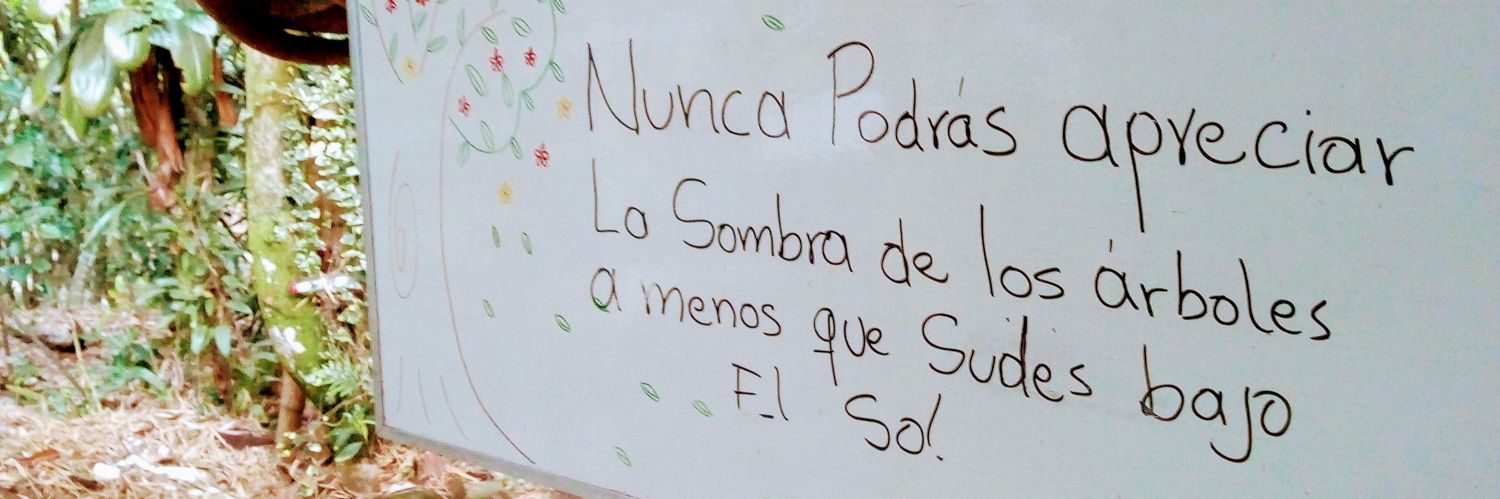 Nunca Podrás apreciar
La Sombra de los árboles
a menos que Sudes bajo
El Sol.